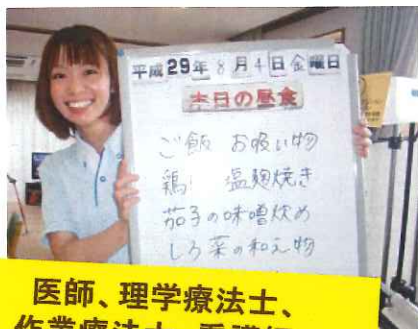 平成29年8月4日金曜日
本日の昼食
ご飯 お吸い物
鶏 塩麹焼き
茄子の味噌炒め
しろ菜の和え物
医師、理学療法士、
作業療法士、看護